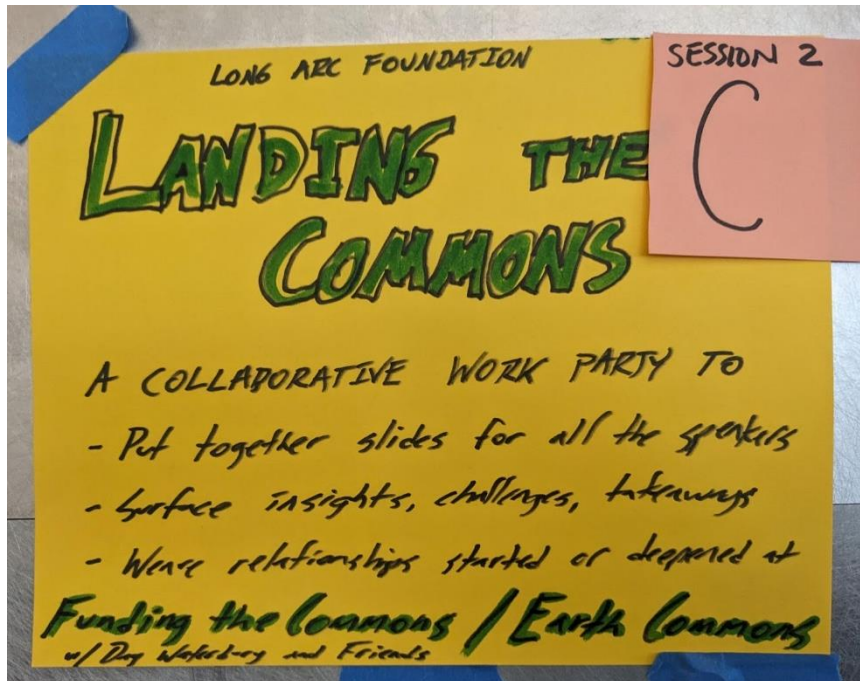 LONG ARC FOUNDATION
SESSION 2
C
LANDING THE
COMMONS
A COLLABORATIVE WORK PARTY TO
- Put together slides for all the speakers
- Surface insights, challenges, takeaways
- Weave relationships started or deepened at
Funding the Commons / Earth Commons
w/ Waterbury and Friends